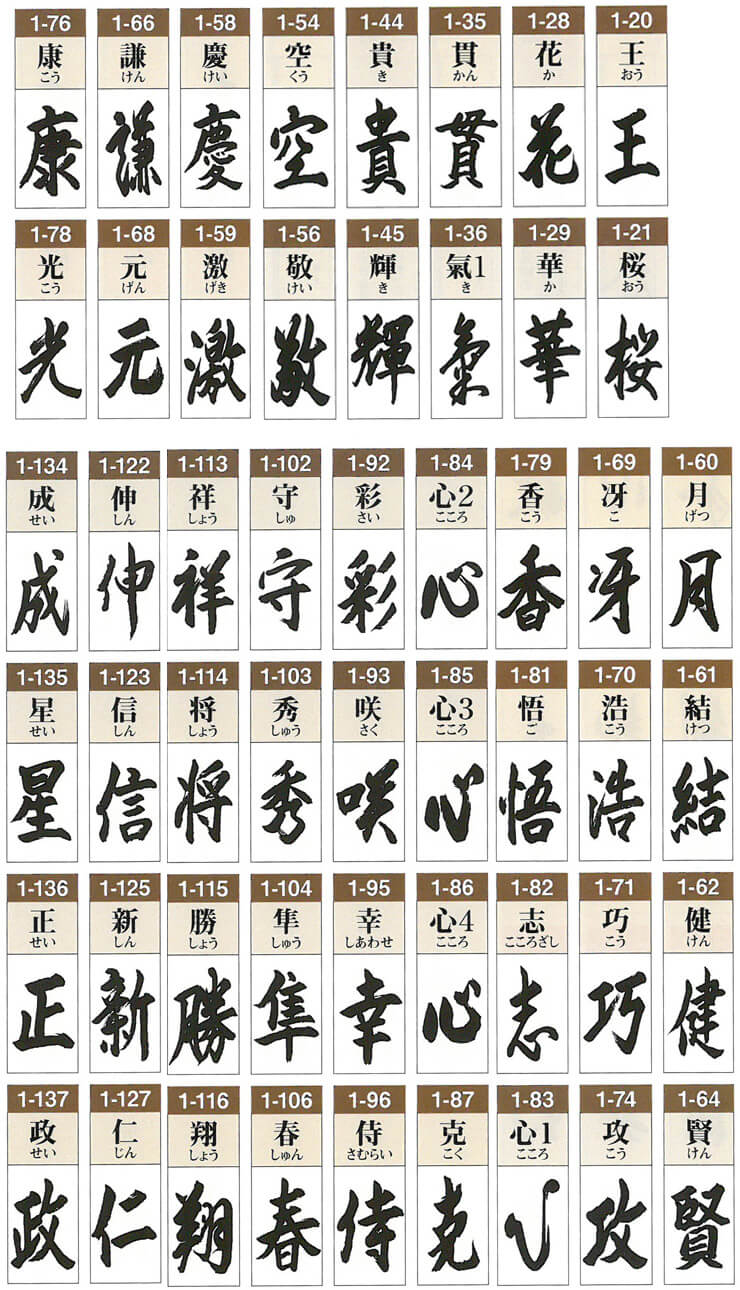 1-76 1-66 1-58 1-54 1-44 1-35 1-28 1-20
康 謙 慶 空 貴 貫 花 王
こう けん けい くう き かん か おう
康 謙 慶 空 貴 貫 花 王
1-78 1-68 1-59 1-56 1-45 1-36 1-29 1-21
光 元 激 敬 輝 氣1 華 桜
こう げん げき けい き き か おう
光 元 激 敬 輝 氣 華 桜
1-134 1-122 1-113 1-102 1-92 1-84 1-79 1-69 1-60
成 伸 祥 守 彩 心2 香 冴 月
せい しん しょう しゅ さい こころ こう こ げつ
成 伸 祥 守 彩 心 香 冴 月
1-135 1-123 1-114 1-103 1-93 1-85 1-81 1-70 1-61
星 信 将 秀 咲 心3 悟 浩 結
せい しん しょう しゅう さく こころ ご こう けつ
星 信 将 秀 咲 心 悟 浩 結
1-136 1-125 1-115 1-104 1-95 1-86 1-82 1-71 1-62
正 新 勝 隼 幸 心4 志 巧 健
せい しん しょう しゅう しあわせ こころ こころざし こう けん
正 新 勝 隼 幸 心 志 巧 健
1-137 1-127 1-116 1-106 1-96 1-87 1-83 1-74 1-64
政 仁 翔 春 侍 克 心1 攻 賢
せい じん しょう しゅん さむらい こく こころ こう けん
政 仁 翔 春 侍 克 心 攻 賢